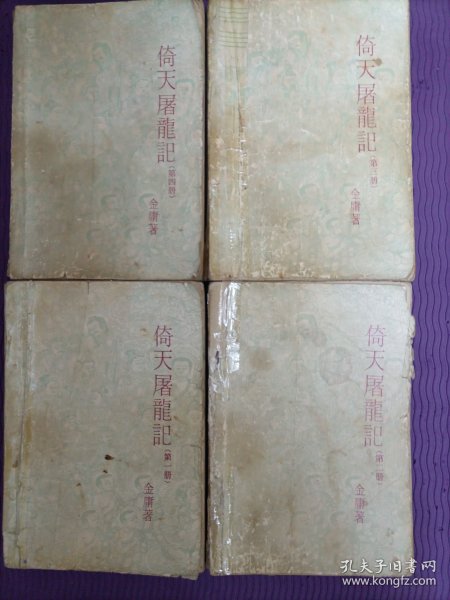 倚天屠龍記（第四册）
金庸著
倚天屠龍記（第三册）
金庸著
倚天屠龍記（第一册）
金庸著
倚天屠龍記（第二册）
金庸著
孔夫子旧书网
www.kongfz.com